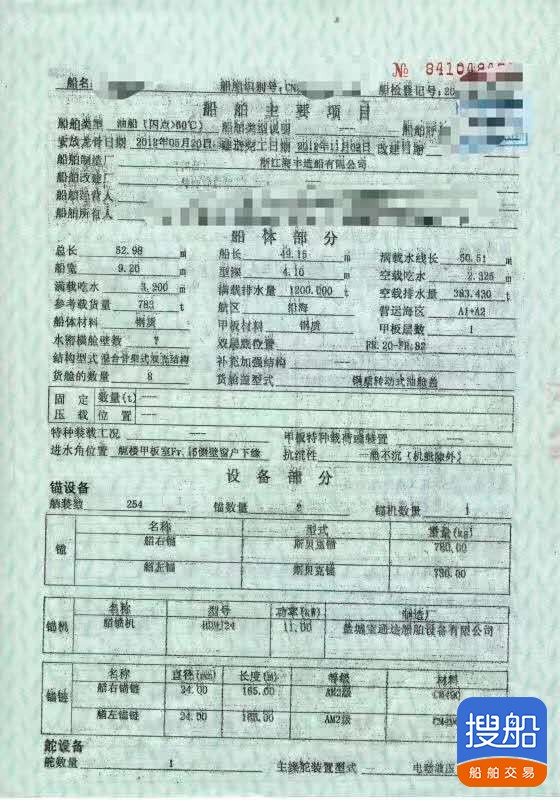 № 841048
船名 船舶识别号:CN 船检登记号:20
船舶主要项目
船舶类型 油船(闪点>60℃) 船舶类型说明 —— 船舶
安放龙骨日期 2012年05月20日 建造完工日期 2012年11月02日 改建日期
船舶制造厂 浙江海丰造船有限公司
船舶改建厂
船舶经营人
船舶所有人
船体部分
总长 52.98 m 船长 49.15 m 满载水线长 50.51 m
船宽 9.20 m 型深 4.10 m 空载吃水 2.325 m
满载吃水 3.200 m 满载排水量 1200.000 t 空载排水量 383.430 t
参考载货量 783 t 航区 沿海 营运海区 A1+A2
船体材料 钢质 甲板材料 钢质 甲板层数 1
水密横舱壁数 7 双层底位置 FR.20-FR.82
结构型式 混合骨架式双壳结构 补充加强结构 ——
货舱的数量 8 货舱盖型式 钢质转动式油舱盖
固定 数量(t) ——
压载 位置 ——
特种装载工况 —— 甲板特种载荷或装置 ——
进水角位置 艉楼甲板室Fr.15侧壁窗户下缘 抗沉性 一舱不沉(机舱除外)
设备部分
锚设备
舾装数 254 锚数量 2 锚机数量 1
锚 名称 型式 重量(kg)
艏右锚 斯贝克锚 780.00
艏左锚 斯贝克锚 790.00
锚机 名称 型号 功率(kW) 制造厂
艏锚机 11.00 盐城宝通达船舶设备有限公司
锚链 名称 直径(mm) 长度(m) 等级 材料
艏右锚链 24.00 165.00 AM2级 CM490
艏左锚链 24.00 165.00 AM2级 CM490
舵设备
舵数量 1 主操舵装置型式 —— 电动液压
搜船
船舶交易